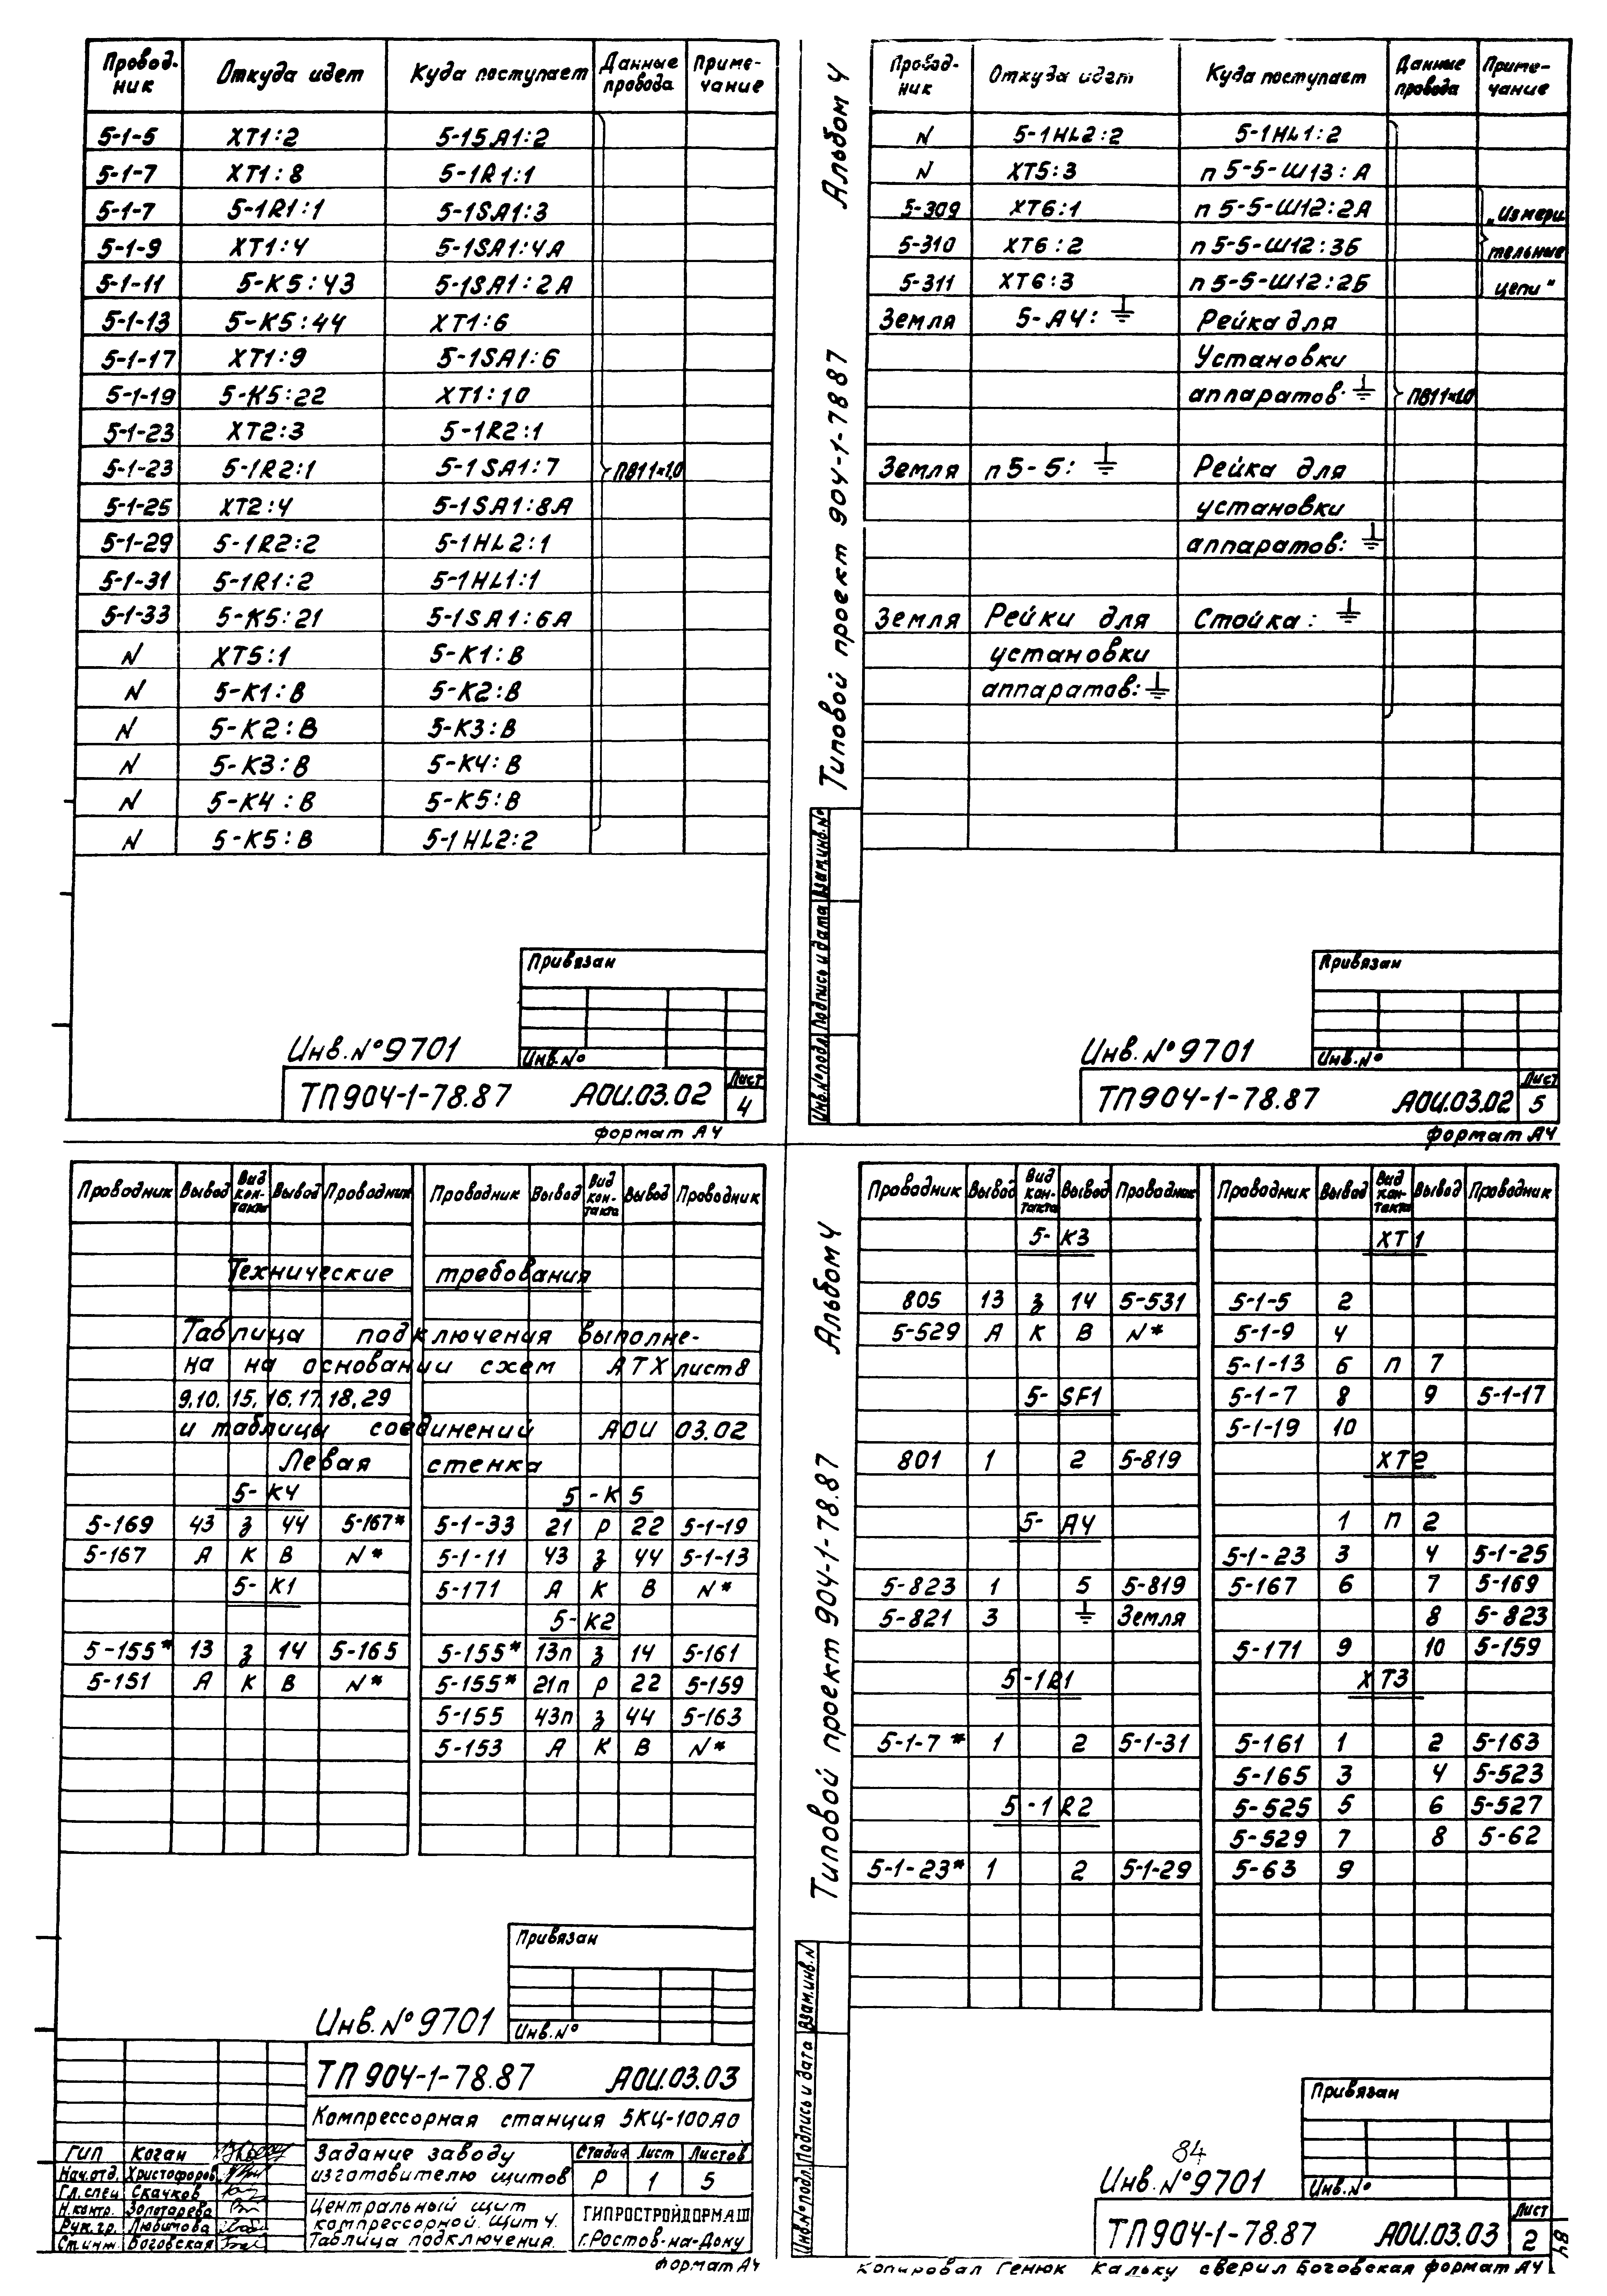 Провод-ник Откуда идет Куда поступает Данные провода Приме-чание
5-1-5 XT1:2 5-1SA1:2
5-1-7 XT1:8 5-1R1:1
5-1-7 5-1R1:1 5-1SA1:3
5-1-9 XT1:4 5-1SA1:4A
5-1-11 5-K5:43 5-1SA1:2A
5-1-13 5-K5:44 XT1:6
5-1-17 XT1:9 5-1SA1:6
5-1-19 5-K5:22 XT1:10
5-1-23 XT2:3 5-1R2:1
5-1-23 5-1R2:1 5-1SA1:7 ПВ1 1×1,0
5-1-25 XT2:4 5-1SA1:8A
5-1-29 5-1R2:2 5-1HL2:1
5-1-31 5-1R1:2 5-1HL1:1
5-1-33 5-K5:21 5-1SA1:6A
N XT5:1 5-K1:B
N 5-K1:B 5-K2:B
N 5-K2:B 5-K3:B
N 5-K3:B 5-K4:B
N 5-K4:B 5-K5:B
N 5-K5:B 5-1HL2:2
Привязан
Инв.№
Инв.№9701
ТП904-1-78.87 АОИ.03.02 Лист 4
формат А4
Альбом 4
Типовой проект 904-1-78 87
Инв.№подл. Подпись и дата Взам.инв.№
Провод-ник Откуда идет Куда поступает Данные провода Приме-чание
N 5-1HL2:2 5-1HL1:2
N XT5:3 п5-5-Ш13:А
5-309 XT6:1 п5-5-Ш12:2А „Измери
5-310 XT6:2 п5-5-Ш12:3Б тельные
5-311 XT6:3 п5-5-Ш12:2Б цепи"
Земля 5-А4:⏚ Рейка для
Установки
аппаратов:⏚ ПВ1 1×1.0
Земля п5-5:⏚ Рейка для
установки
аппаратов:⏚
Земля Рейки для Стойка:⏚
установки
аппаратов:⏚
Привязан
Инв.№
Инв.№9701
ТП904-1-78.87 АОИ.03.02 Лист 5
формат А4
Проводник Вывод Вид кон-такта Вывод Проводник Проводник Вывод Вид кон-такта Вывод Проводник
Технические требования
Таблица подключения выполне-
на на основании схем АТХ лист 8
9,10, 15, 16,17,18,29
и таблицы соединений АОИ 03.02
Левая стенка
5-К4 5-К5
5-169 43 з 44 5-167* 5-1-33 21 р 22 5-1-19
5-167 А К В N* 5-1-11 43 з 44 5-1-13
5-К1 5-171 А К В N*
5-К2
5-155* 13 з 14 5-165 5-155* 13п з 14 5-161
5-151 А К В N* 5-155* 21п р 22 5-159
5-155 43п з 44 5-163
5-153 А К В N*
Привязан
Инв.№
Инв.№9701
ТП904-1-78.87 АОИ.03.03
Компрессорная станция 5КЦ-100А0
Задание заводу изготовителю щитов
Стадия Лист Листов
Р 1 5
Центральный щит компрессорной. Щит 4. Таблица подключения.
ГИПРОСТРОЙДОРМАШ
г.Ростов-на-Дону
ГИП Коган
Нач.отд. Христофоров
Гл.спец Скачков
Н.контр. Золотарева
Рук.гр. Любимова
Ст.инж. Боговская
формат А4
Альбом 4
Типовой проект 904-1-78.87
Инв.№подл. Подпись и дата Взам.инв.№
Проводник Вывод Вид кон-такта Вывод Проводник Проводник Вывод Вид кон-такта Вывод Проводник
5-К3 XT1
805 13 з 14 5-531 5-1-5 2
5-529 А К В N* 5-1-9 4
5-1-13 6 п 7
5-SF1 5-1-7 8 9 5-1-17
5-1-19 10
801 1 2 5-819 XT2
5-А4 1 п 2
5-1-23 3 4 5-1-25
5-823 1 5 5-819 5-167 6 7 5-169
5-821 3 ⏚ Земля 8 5-823
5-171 9 10 5-159
5-1R1 XT3
5-1-7* 1 2 5-1-31 5-161 1 2 5-163
5-165 3 4 5-523
5-1R2 5-525 5 6 5-527
5-529 7 8 5-62
5-1-23* 1 2 5-1-29 5-63 9
Привязан
Инв.№
84
Инв.№9701
ТП904-1-78.87 АОИ.03.03 Лист 2
84
Копировал Генюк Кальку сверил Боговская формат А4